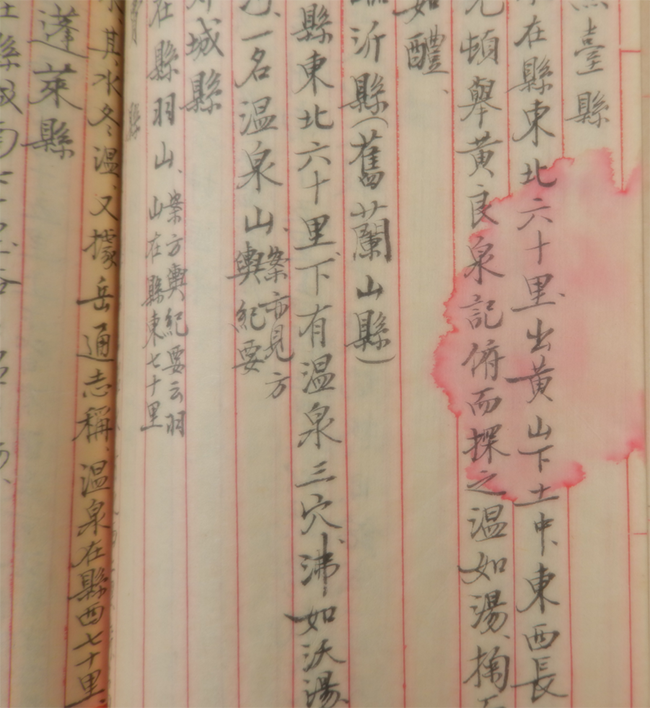 臺縣
在縣東北六十里出黃山下土中、東西長
頓舉黃良泉記俯而探之温如湯、掬
如醴、
沂縣(舊蘭山縣)
縣東北六十里下有温泉三穴沸如沃湯
一名温泉山、案亦見方輿紀要
城縣
在縣羽山、案方輿紀要云羽山在縣東七十里
其水冬温、又據岳通志稱、温泉在縣西七十里、
蓬萊縣